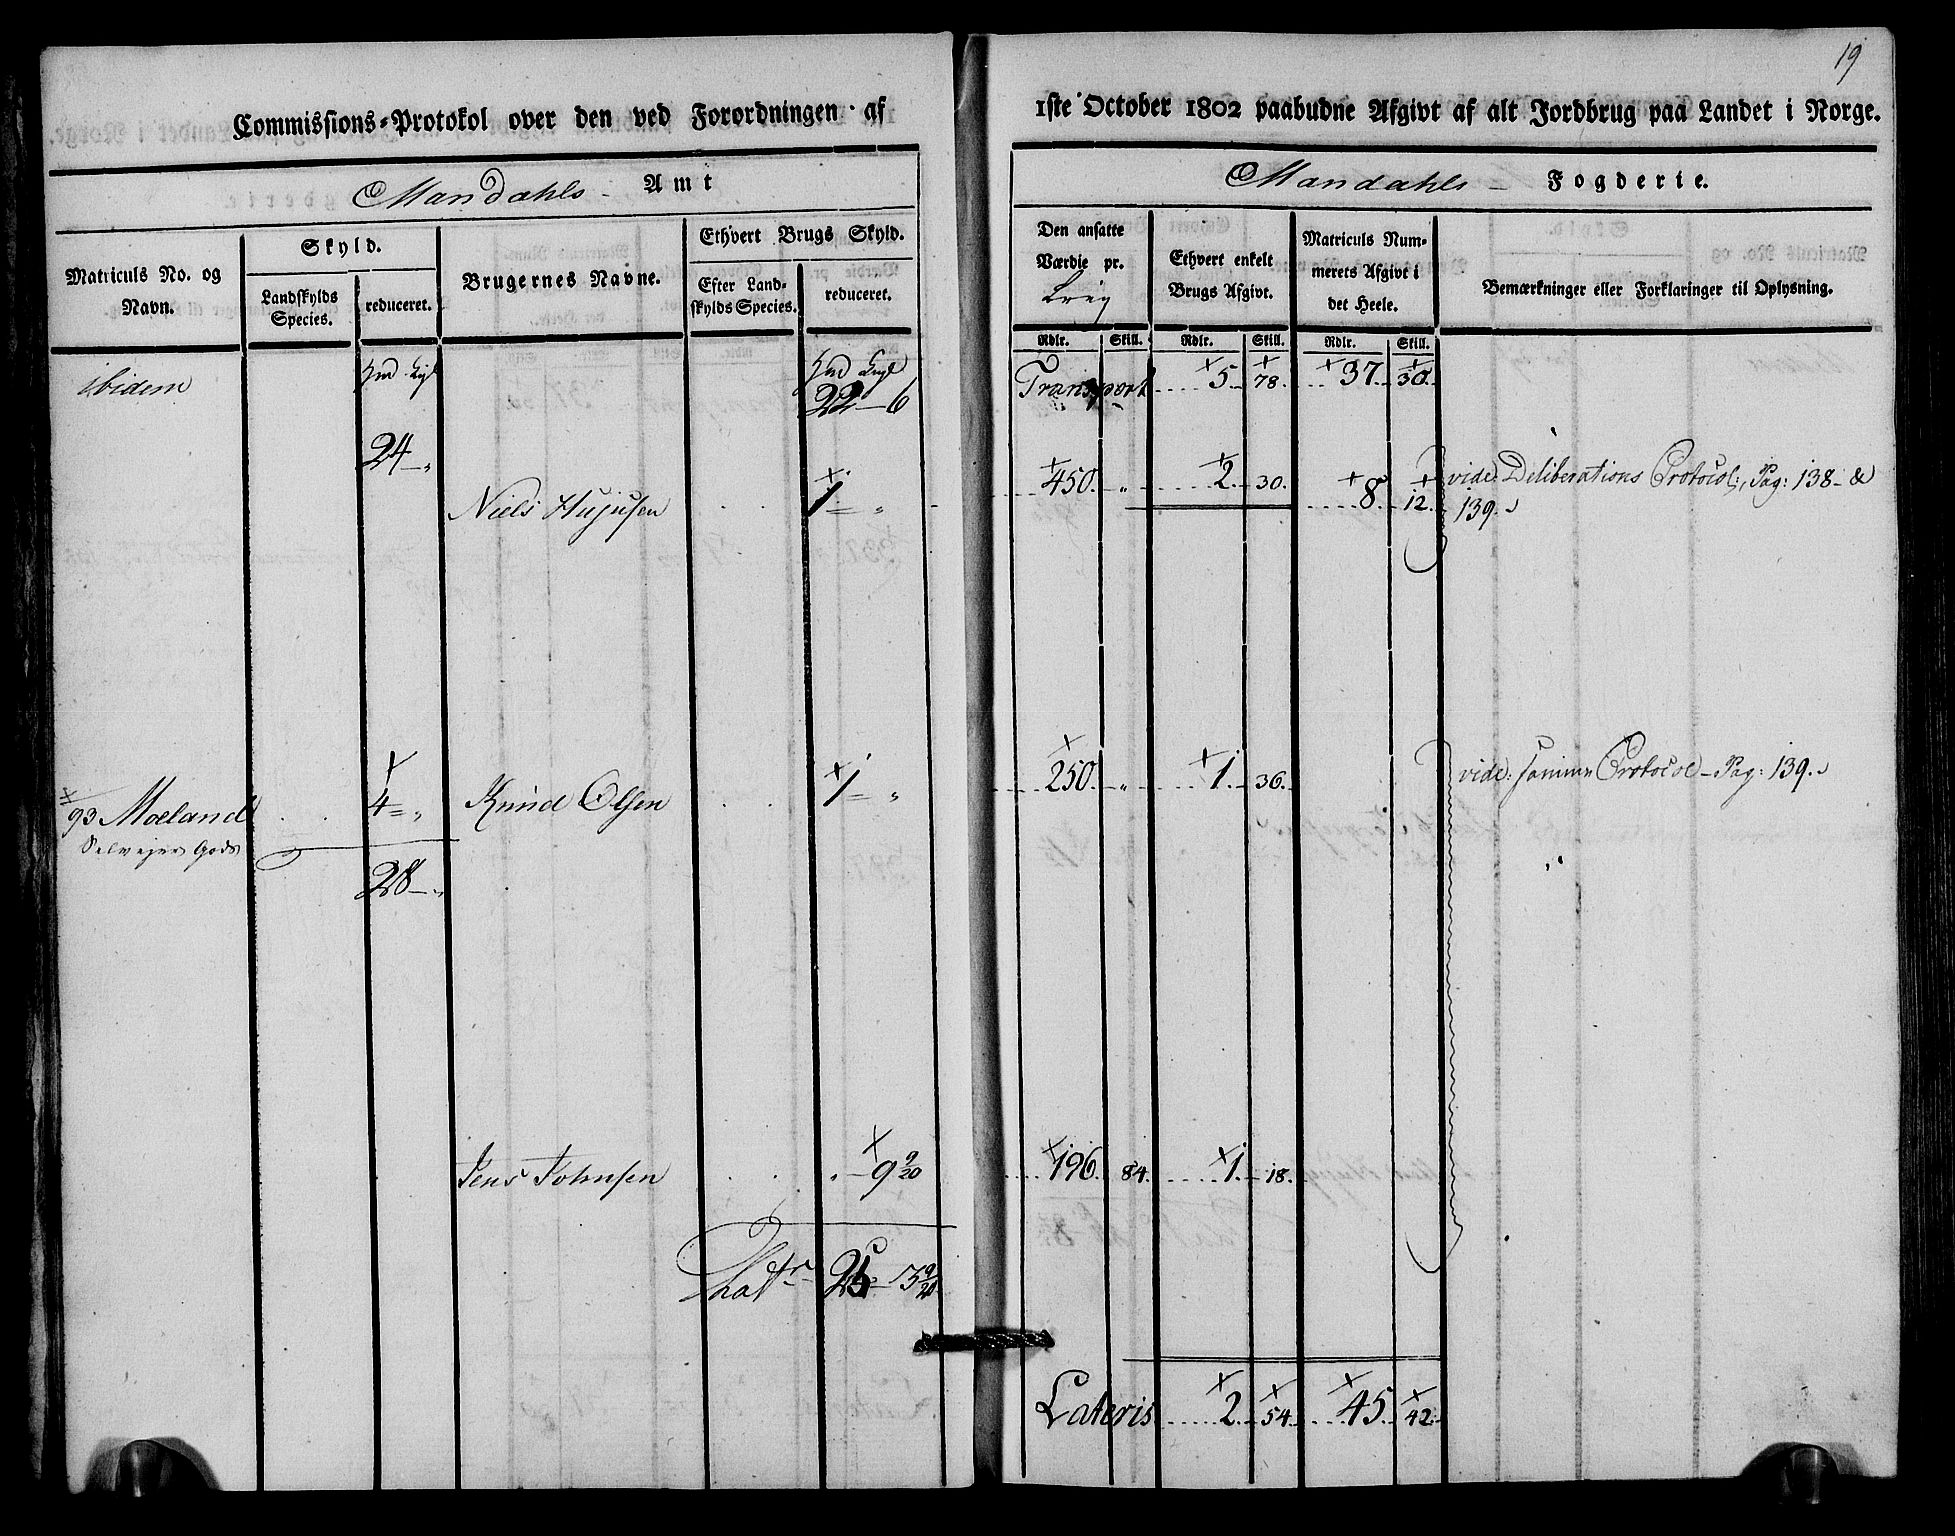 19
Commissions-Protokol over den ved Forordningen af 1ste October 1802 paabudne Afgivt af alt Jordbrug paa Landet i Norge.
Mandahls Amt
Mandahls Fogderie.
Matriculs No. og Navn.
Skyld.
Landskylds Species.
reduceret.
Brugernes Navne.
Ethvert Brugs Skyld.
Efter Landskylds Species.
reduceret.
Den ansatte Værdie pr.
Ethvert enkelt Brugs Afgivt.
Matriculs Nummerets Afgivt i det Heele.
Bemærkninger eller Forklaringer til Oplysning.
Rdlr. Skill. Rdlr. Skill. Rdlr. Skill.
ibidem
22 – 6 Transport 5. 78. 37. 30.
24 – "
Niels 1 = " 450. " 2. 30. 8. 12. vide: Deliberations Protocol:, Pag: 138 – &
139.
93 Moeland 4 = " Knud Olsen 1 = " 250. " 1. 36. vide: samme Protocol – Pag: 139.
Selvejer Gods
28 – "
Jens Johnsen " – 9 9/20 196. 84. 1. 18.
25 – 3 9/20
Lateris 2. 54. 45. 42.